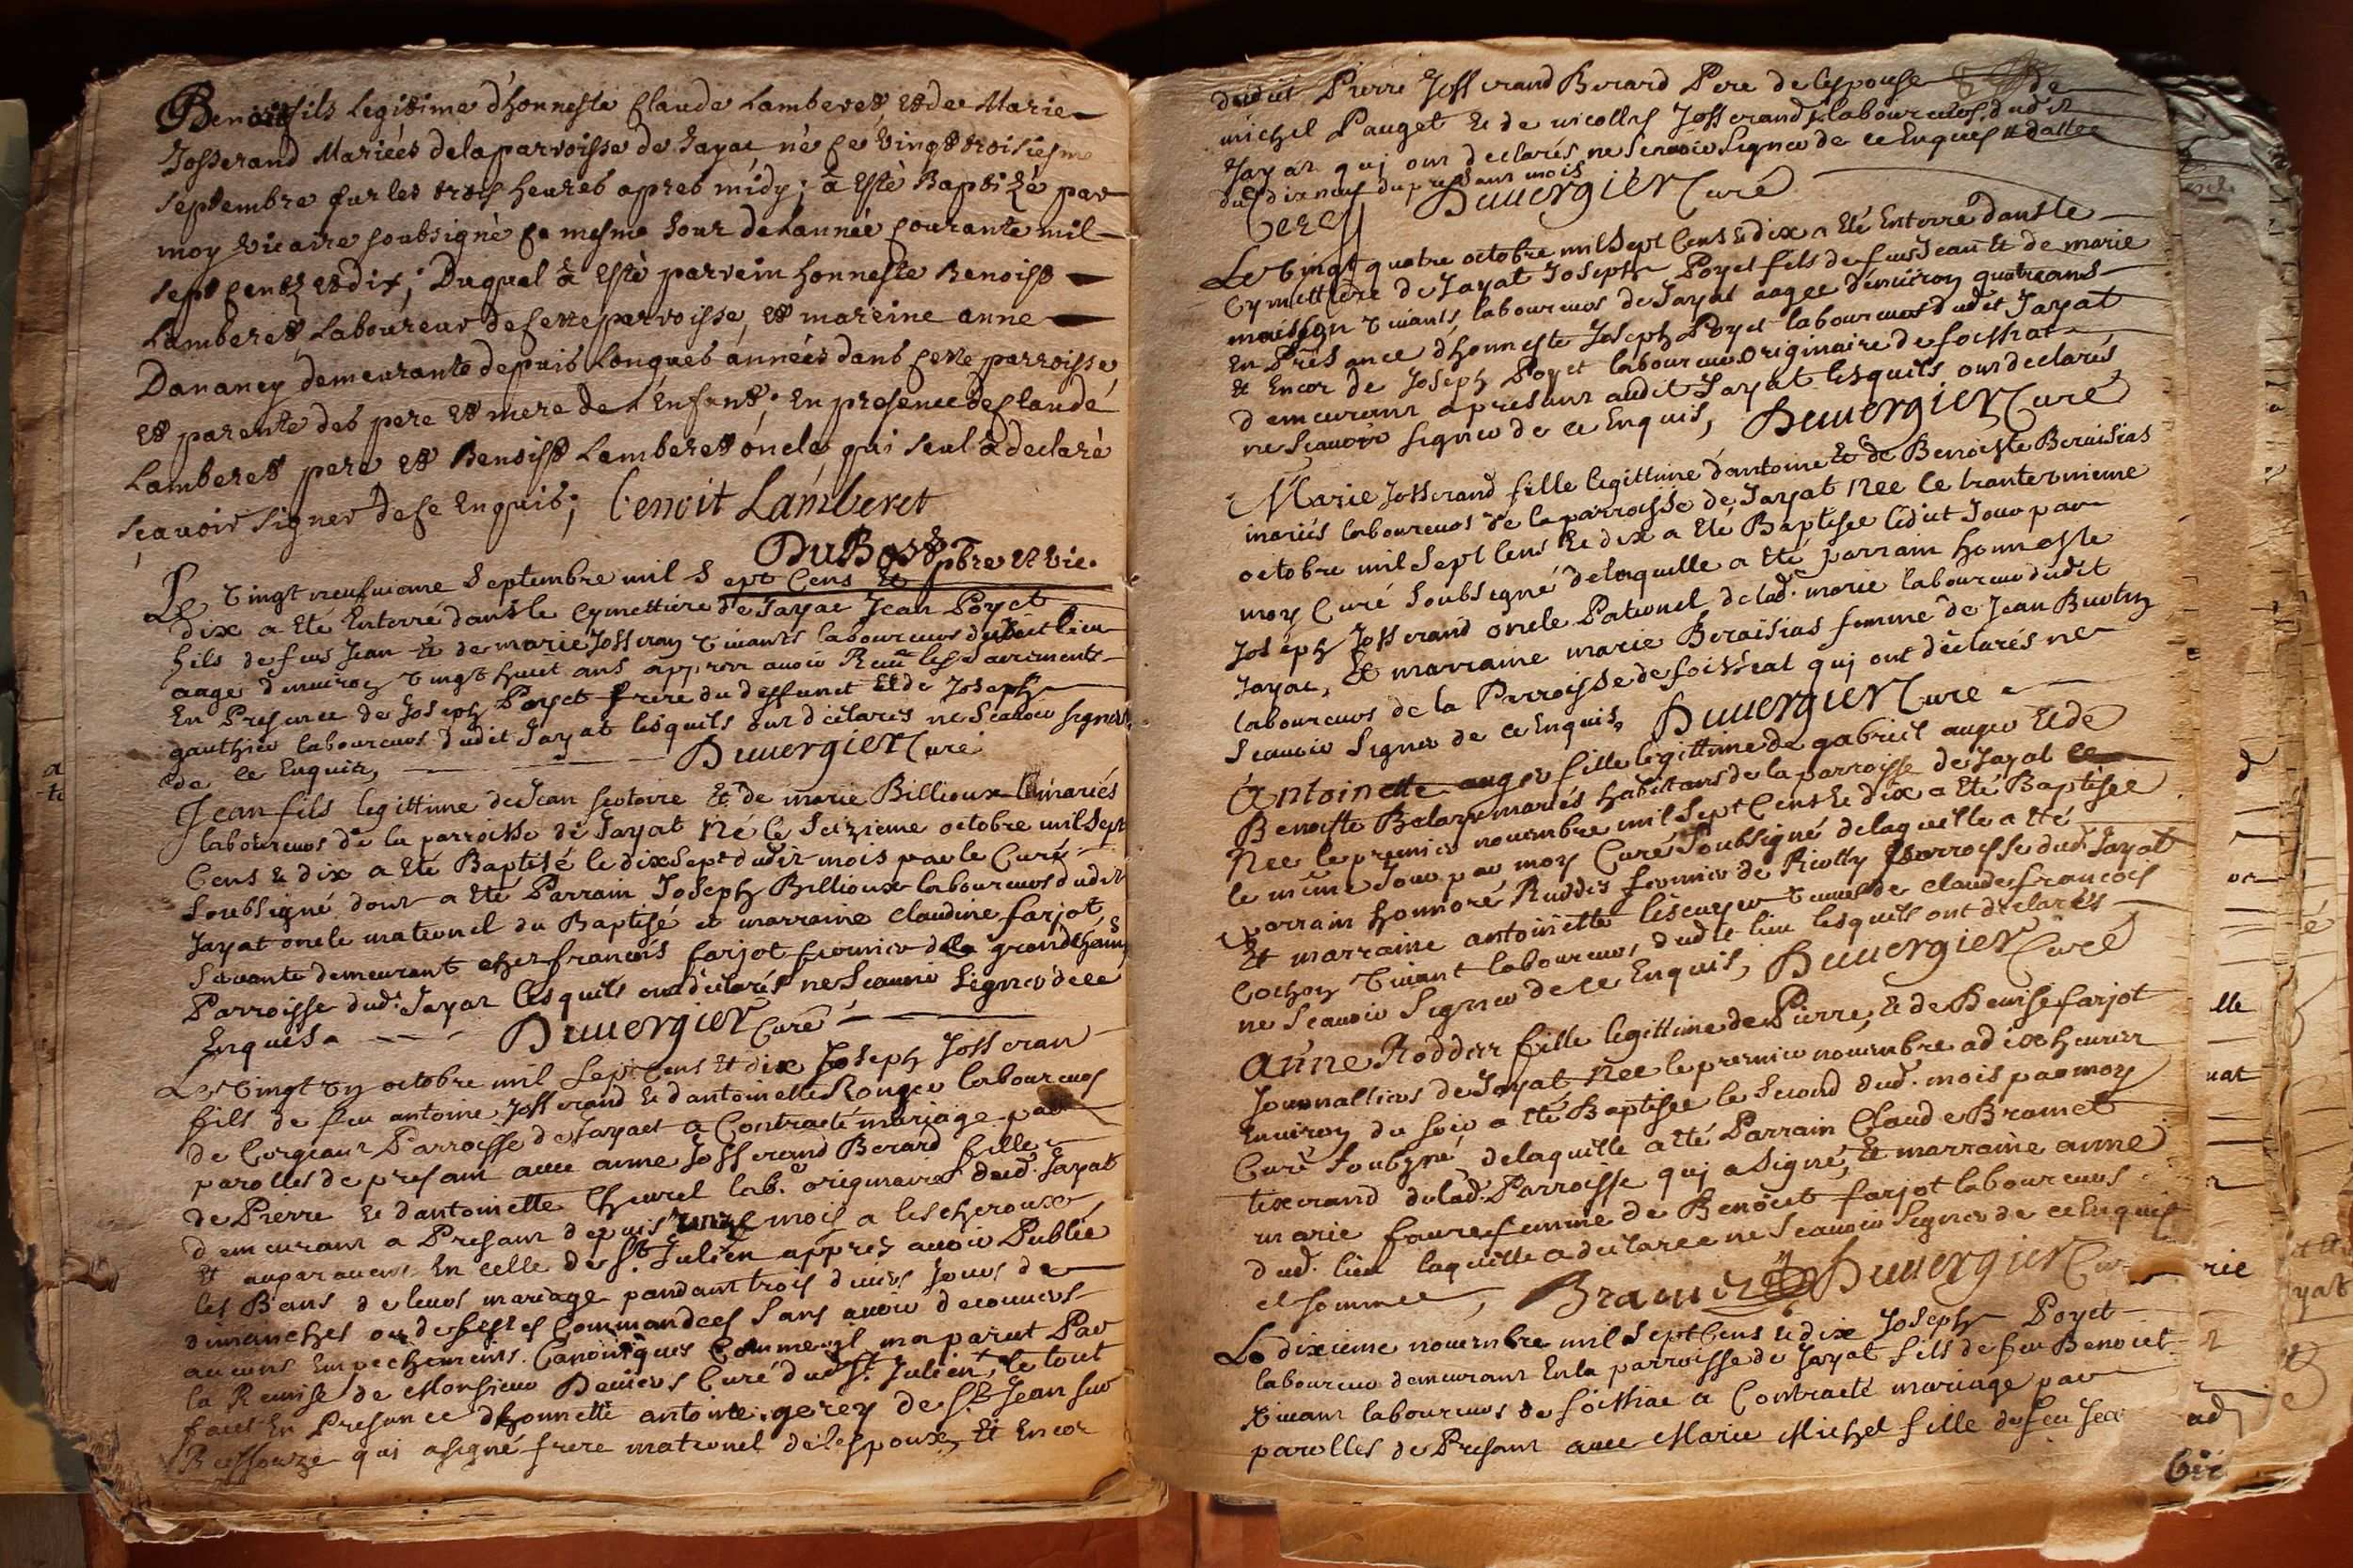 Benoist fils legitime d'honneste Claude Lamberet, et de Marie
Josserand Mariéés de la parroisse de Jayac né ce vingt troisiesme
septembre sur les trois heures apres midy; à Esté Baptizé par
moy vicaire soubsigné ce mesme Jour de Lannée courante mil
sept centz et dix; Duquel à Esté parrein honneste Benoist
Lamberet Laboureur de cette parroisse, et mareine anne
Dananey demeurante depuis Longues années dans cette parroisse
et parente des pere et mere de L'Enfant; En presence de Claude
Lamberet pere et Benoist Lamberet oncle qui seul a declaré
sçavoir signer de ce Enquis; benoit Lamberet
DuBost pbre et vic.
Le vingt neufuieme Septembre mil Sept Cens Et
dix a Eté Enterré dans le Cymettiere de Jayac Jean Poyet
fils de feus Jean Et de marie Josseran vivants laboureurs dudit lieu
aagé d'enuiron vingt huit ans apprez auoir Receu les Sacrements
En Presence de Joseph Poyet frere du deffunct Et de Joseph
gauthier laboureurs dudit Jayat lesquels ont déclarés ne Scauoir signer
de ce Enquis, Duuergier Curé
Jean fils legittime de Jean Et de marie Billioux mariés
laboureurs de la parroisse de Jayat Né le Seizieme octobre mil Sept
Cens & dix a Eté Baptisé le dix Sept dudit mois par le Curé
Soubsigné dont a Eté Parrain Joseph Billioux laboureurs dudit
Jayat oncle maternel du Baptisé et marraine Claudine farjot
Servante demeurant chez francois farjot fermier de la
Parroisse dud. Jayat lesquels ont déclarés ne Scauoir Signer de ce
Enquis. Duuergier Curé
Le vingt vn octobre mil Sept Cens Et dix Joseph Josseran
fils de feu antoine Josserand & d'antoinette Rouger laboureurs
de Parroisse de Jayat a Contracté mariage par
parolles de presant auec anne Josserand Berard fille
de Pierre & d'antoinette lab. originaires dud. Jayat
demeurant a Presant depuis mois a lescheroux
Et auparauant En celle de St. Julien apprez auoir Publié
les Bans de leurs mariage pandant trois diuers Jours de
dimanches ou de festes Commandées Sans auoir decouuers
aucuns Empechements Canoniques Comme il m'a parut Par
la Remise de Monsieur Curé dud. St. Julien, le tout
fait En Presance d'honnette antoine gerey de St. Jean sur
qui a signé frere maternel de lespoux, Et Encor
dudit Pierre Josserand Berard Pere de lespouse & de
michel Pauget & de nicollas Josserand laboureurs dudit
Jayat qui ont declarés ne Scauoir Signer de ce Enquis
du dixneuf du presant mois
Duuergier Curé
Le vingt quatre octobre mil Sept Cens & dix a Eté Enterré dans le
Cymettiere de Jayat Joseph Poyet fils de feus Jean Et de marie
vivants laboureurs de Jayat aagée d'enuiron quatre ans
En Presance d'honneste Joseph Poyet laboureur dudit Jayat
Et Encor de Joseph Poyet laboureur originaire de foissiat
demeurant apresant audit Jayat lesquels ont declarés
ne Scauoir Signer de ce Enquis, Duuergier Curé
Marie Josserand fille legittime d'antoine Et de Benoiste Beraisias
mariés laboureurs de la parroisse de Jayat Née le
octobre mil Sept Cens Et dix a Eté Baptisée ledit Jour par
moy Curé Soubsigné de laquelle a Eté parrain honneste
Joseph Josserand oncle Paternel de lad. marie laboureur dudit
Jayac, Et marraine marie Beraisias femme de Jean
laboureurs de la Parroisse de foissiat qui ont déclarés ne
Scauoir Signer de ce Enquis, Duuergier Curé
Antoinette auger fille legittime de gabriel auger Et de
Benoiste mariés habittans de la parroisse de Jayat
Née le premier nouembre mil Sept Cens & dix a Eté Baptisée
le même Jour par moy Curé Soubsigné de laquelle a Eté
parrain honnoré fermier de Parroisse dud. Jayat
Et marraine antoinette lescuyer de Claude francois
Cochon vivant laboureurs dudit lieu lesquels ont déclarés
ne Scauoir Signer de ce Enquis, Duuergier Curé
Anne Roddier fille legittime de Pierre, & de Denise farjot
Journalliers de Jayat, Née le premier nouembre a dix heures
Enuiron du soir a Eté Baptisée le Second dud. mois par moy
Curé Soubsigné delaquelle a Eté Parrain Claude Bramet
tixerand de lad. Parroisse qui a Signé, Et marraine anne
marie faure femme de Benoict farjot laboureurs
dud. lieu laquelle a déclarée ne Scauoir Signer de ce Enquise
et Sommée, Bramet Duuergier Cur
Le dixieme nouembre mil Sept Cens & dix Joseph Poyet
laboureur demeurant En la parroisse de Jayat fils de feu Benoict
vivant laboureurs de foissiac a Contracté mariage par
parolles de Presant auec Marie Michel fille de feu